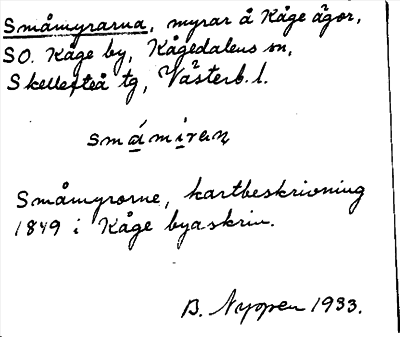 Småmyrarna, myrar å Kåge ägor,
SO. Kåge by, Kågedalens sn,
Skellefteå tg, Västerb. l.
småmiran
Småmyrorne, kartbeskrivning
1849 i Kåge byaskrin.
B. Nyppen 1933.